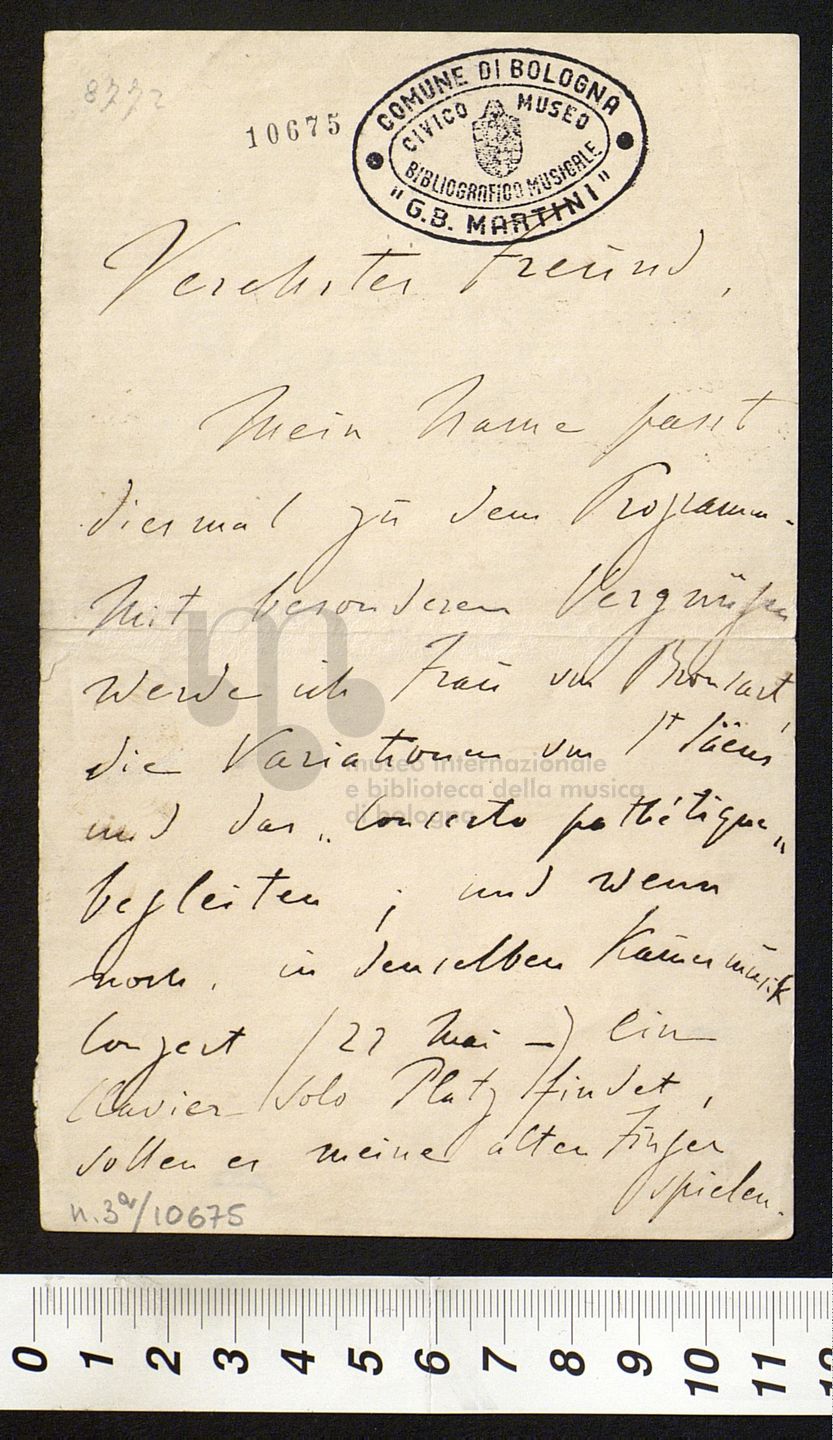 8772
10675
COMUNE DI BOLOGNA
CIVICO MUSEO
BIBLIOGRAFICO MUSICALE
"G.B. MARTINI"
Verehrter Freund,
Mein Name passt
diesmal zu dem Programm.
Mit besonderem Vergnügen
werde ich Frau von Bronsart,
die Variationen von St Säens
und das „Concerto pathétique"
begleiten; und wenn
noch, in demselben Kamermusik
Conzert (22 Mai –) ein
Clavier Solo Platz findet,
sollen es meine alten Finger
spielen.
museo internazionale
e biblioteca della musica
di bologna
n.3a/10675
0 1 2 3 4 5 6 7 8 9 10 11 12